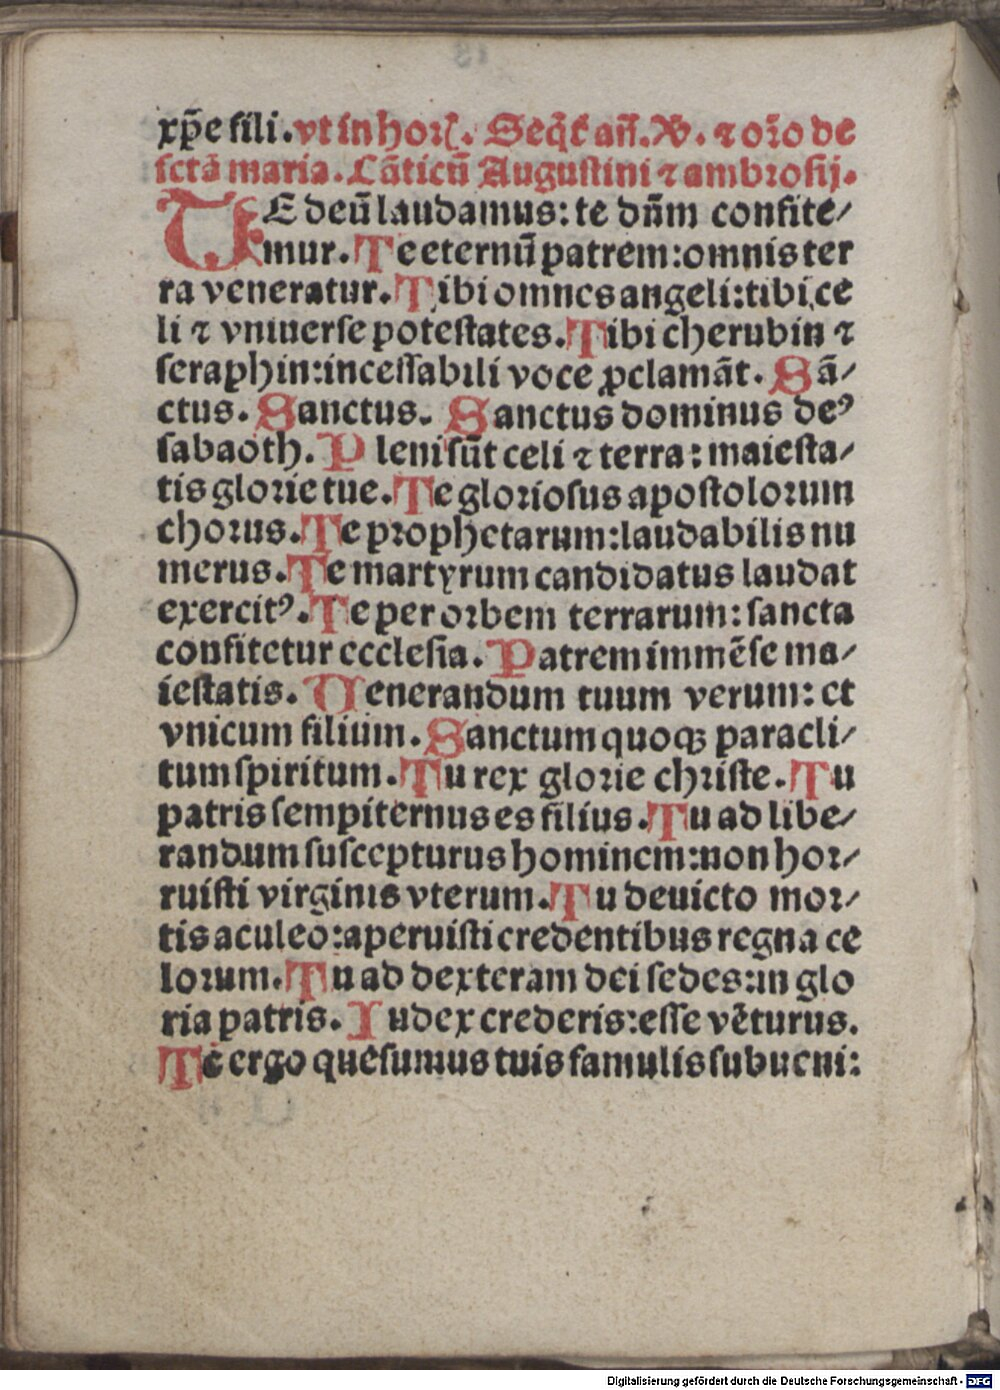 xp̄e fili. vt in horꝭ. Seq̄t̄ an̄. V̄. ⁊ or̄o de
sctā maria. Cāticū Augustini ⁊ ambrosij.
TE deū laudamus: te dn̄m confite/
mur. Te eternū patrem: omnis ter
ra veneratur. Tibi omnes angeli: tibi ce
li ⁊ vniuerse potestates. Tibi cherubin ⁊
seraphin: incessabili voce ꝓclamāt. Sā/
ctus. Sanctus. Sanctus dominus deꝰ
sabaoth. Pleni sūt celi ⁊ terra: maiesta/
tis glorie tue. Te gloriosus apostolorum
chorus. Te prophetarum: laudabilis nu
merus. Te martyrum candidatus laudat
exercitꝰ. Te per orbem terrarum: sancta
confitetur ecclesia. Patrem immēse ma/
iestatis. Venerandum tuum verum: et
vnicum filium. Sanctum quoqꝫ paracli/
tum spiritum. Tu rex glorie christe. Tu
patris sempiternus es filius. Tu ad libe/
randum suscepturus hominem: non hor/
ruisti virginis vterum. Tu deuicto mor/
tis aculeo: aperuisti credentibus regna ce
lorum. Tu ad dexteram dei sedes: in glo
ria patris. Iudex crederis: esse vēturus.
Te ergo quesumus tuis famulis subueni:
Digitalisierung gefördert durch die Deutsche Forschungsgemeinschaft - DFG